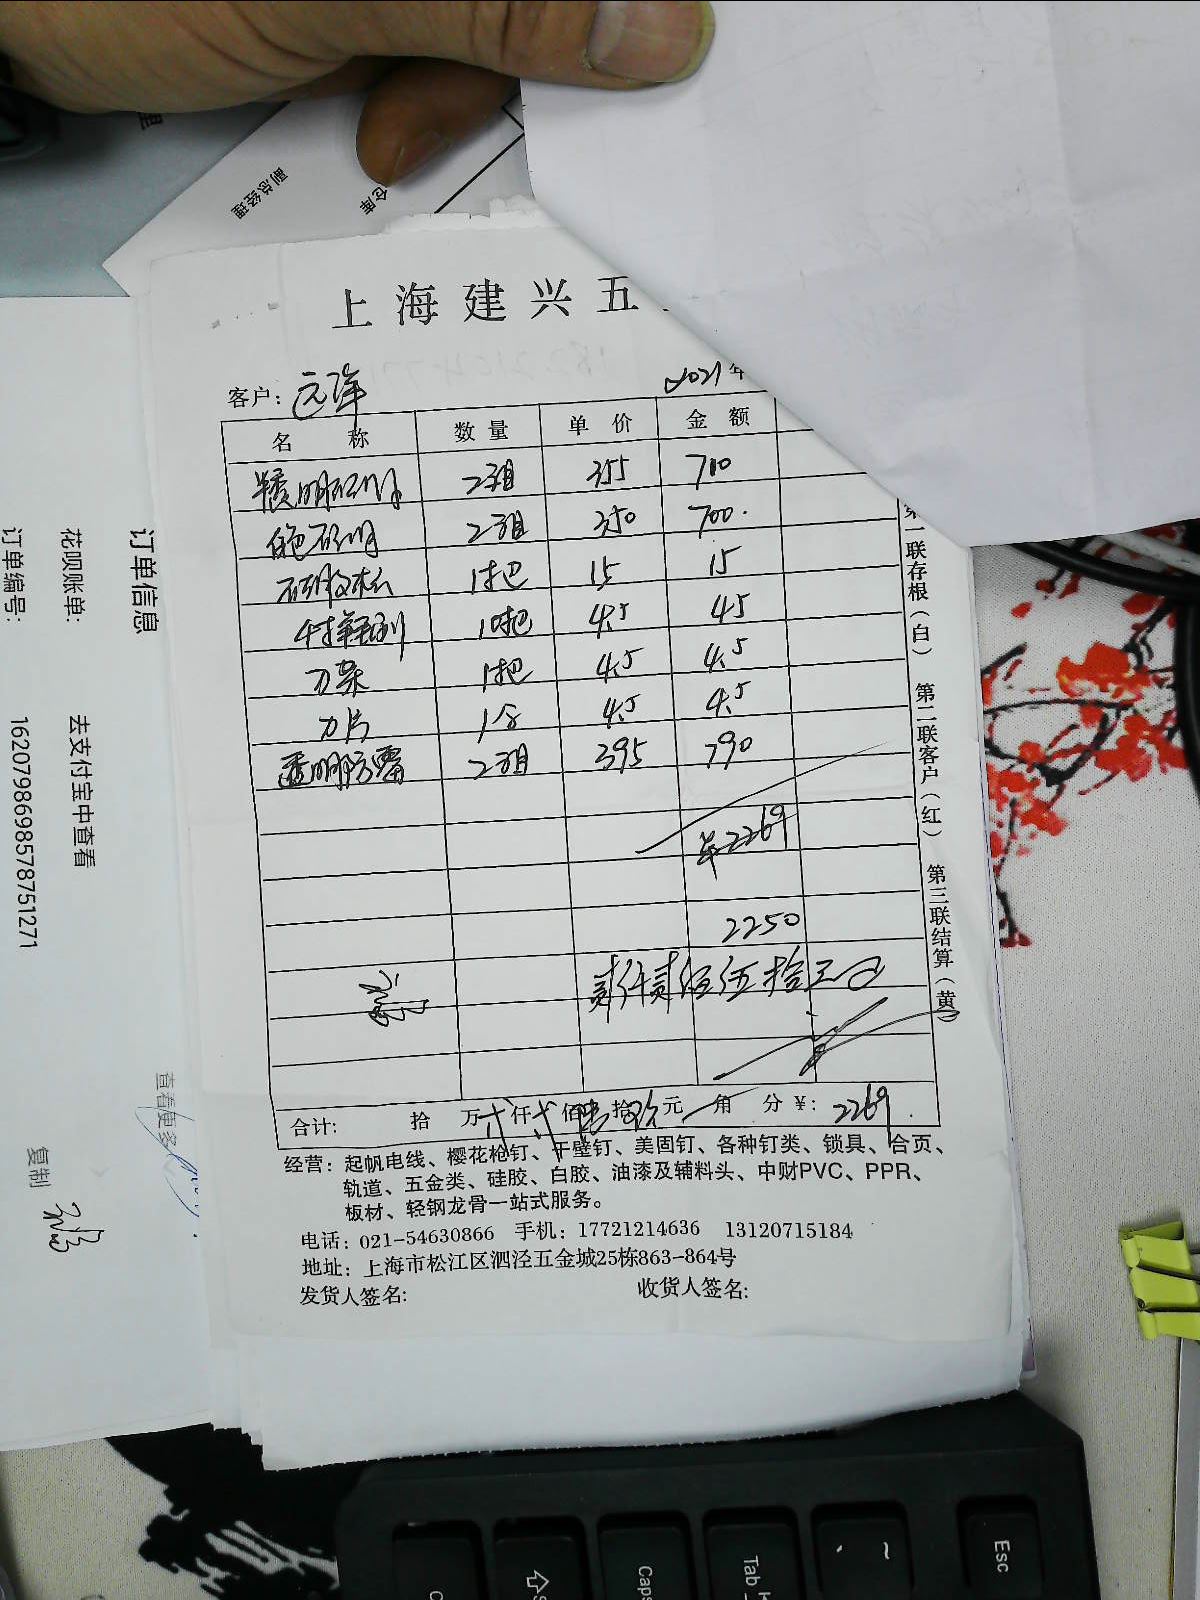 副总经理
仓库
上海建兴五
客户: 远洋
2021年
名称 数量 单价 金额
半透明硅胶 2组 355 710
白色硅胶 2组 350 700.
1把 15 15
10把 4.5 45
刀架 1把 4.5 4.5
刀片 1合 4.5 4.5
透明防霉 2组 395 790
2269
2250
贰仟贰佰伍拾元正
合计: 拾 万 弍仟弍佰陆拾玖元 角 分 ¥: 2269
经营: 起帆电线、樱花枪钉、干壁钉、美固钉、各种钉类、锁具、合页、
轨道、五金类、硅胶、白胶、油漆及辅料头、中财PVC、PPR、
板材、轻钢龙骨一站式服务。
电话: 021-54630866 手机: 17721214636 13120715184
地址: 上海市松江区泗泾五金城25栋863-864号
发货人签名: 收货人签名:
第一联存根(白) 第二联客户(红) 第三联结算(黄)
订单信息
花呗账单: 去支付宝中查看
订单编号: 1620798698578751271
查看更多
复制
Esc
Tab
Caps